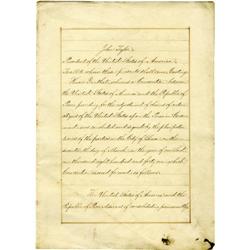 John Tyler
President of the United States of America
To all to whom these presents shall come, Greeting:
Know Ye, that whereas a Convention between
the United States of America and the Republic of
Peru providing for the adjustment of claims of citi-
zens of the United States upon the Peruvian Govern-
ment was concluded and signed by the plenipoten-
tiaries of the parties in the City of Lima on the
seventeenth day of March, in the year of our Lord
one thousand eight hundred and forty one, which
Convention is word for word as follows:
The United States of America and the
Republic of Peru desirous of consolidating permanently